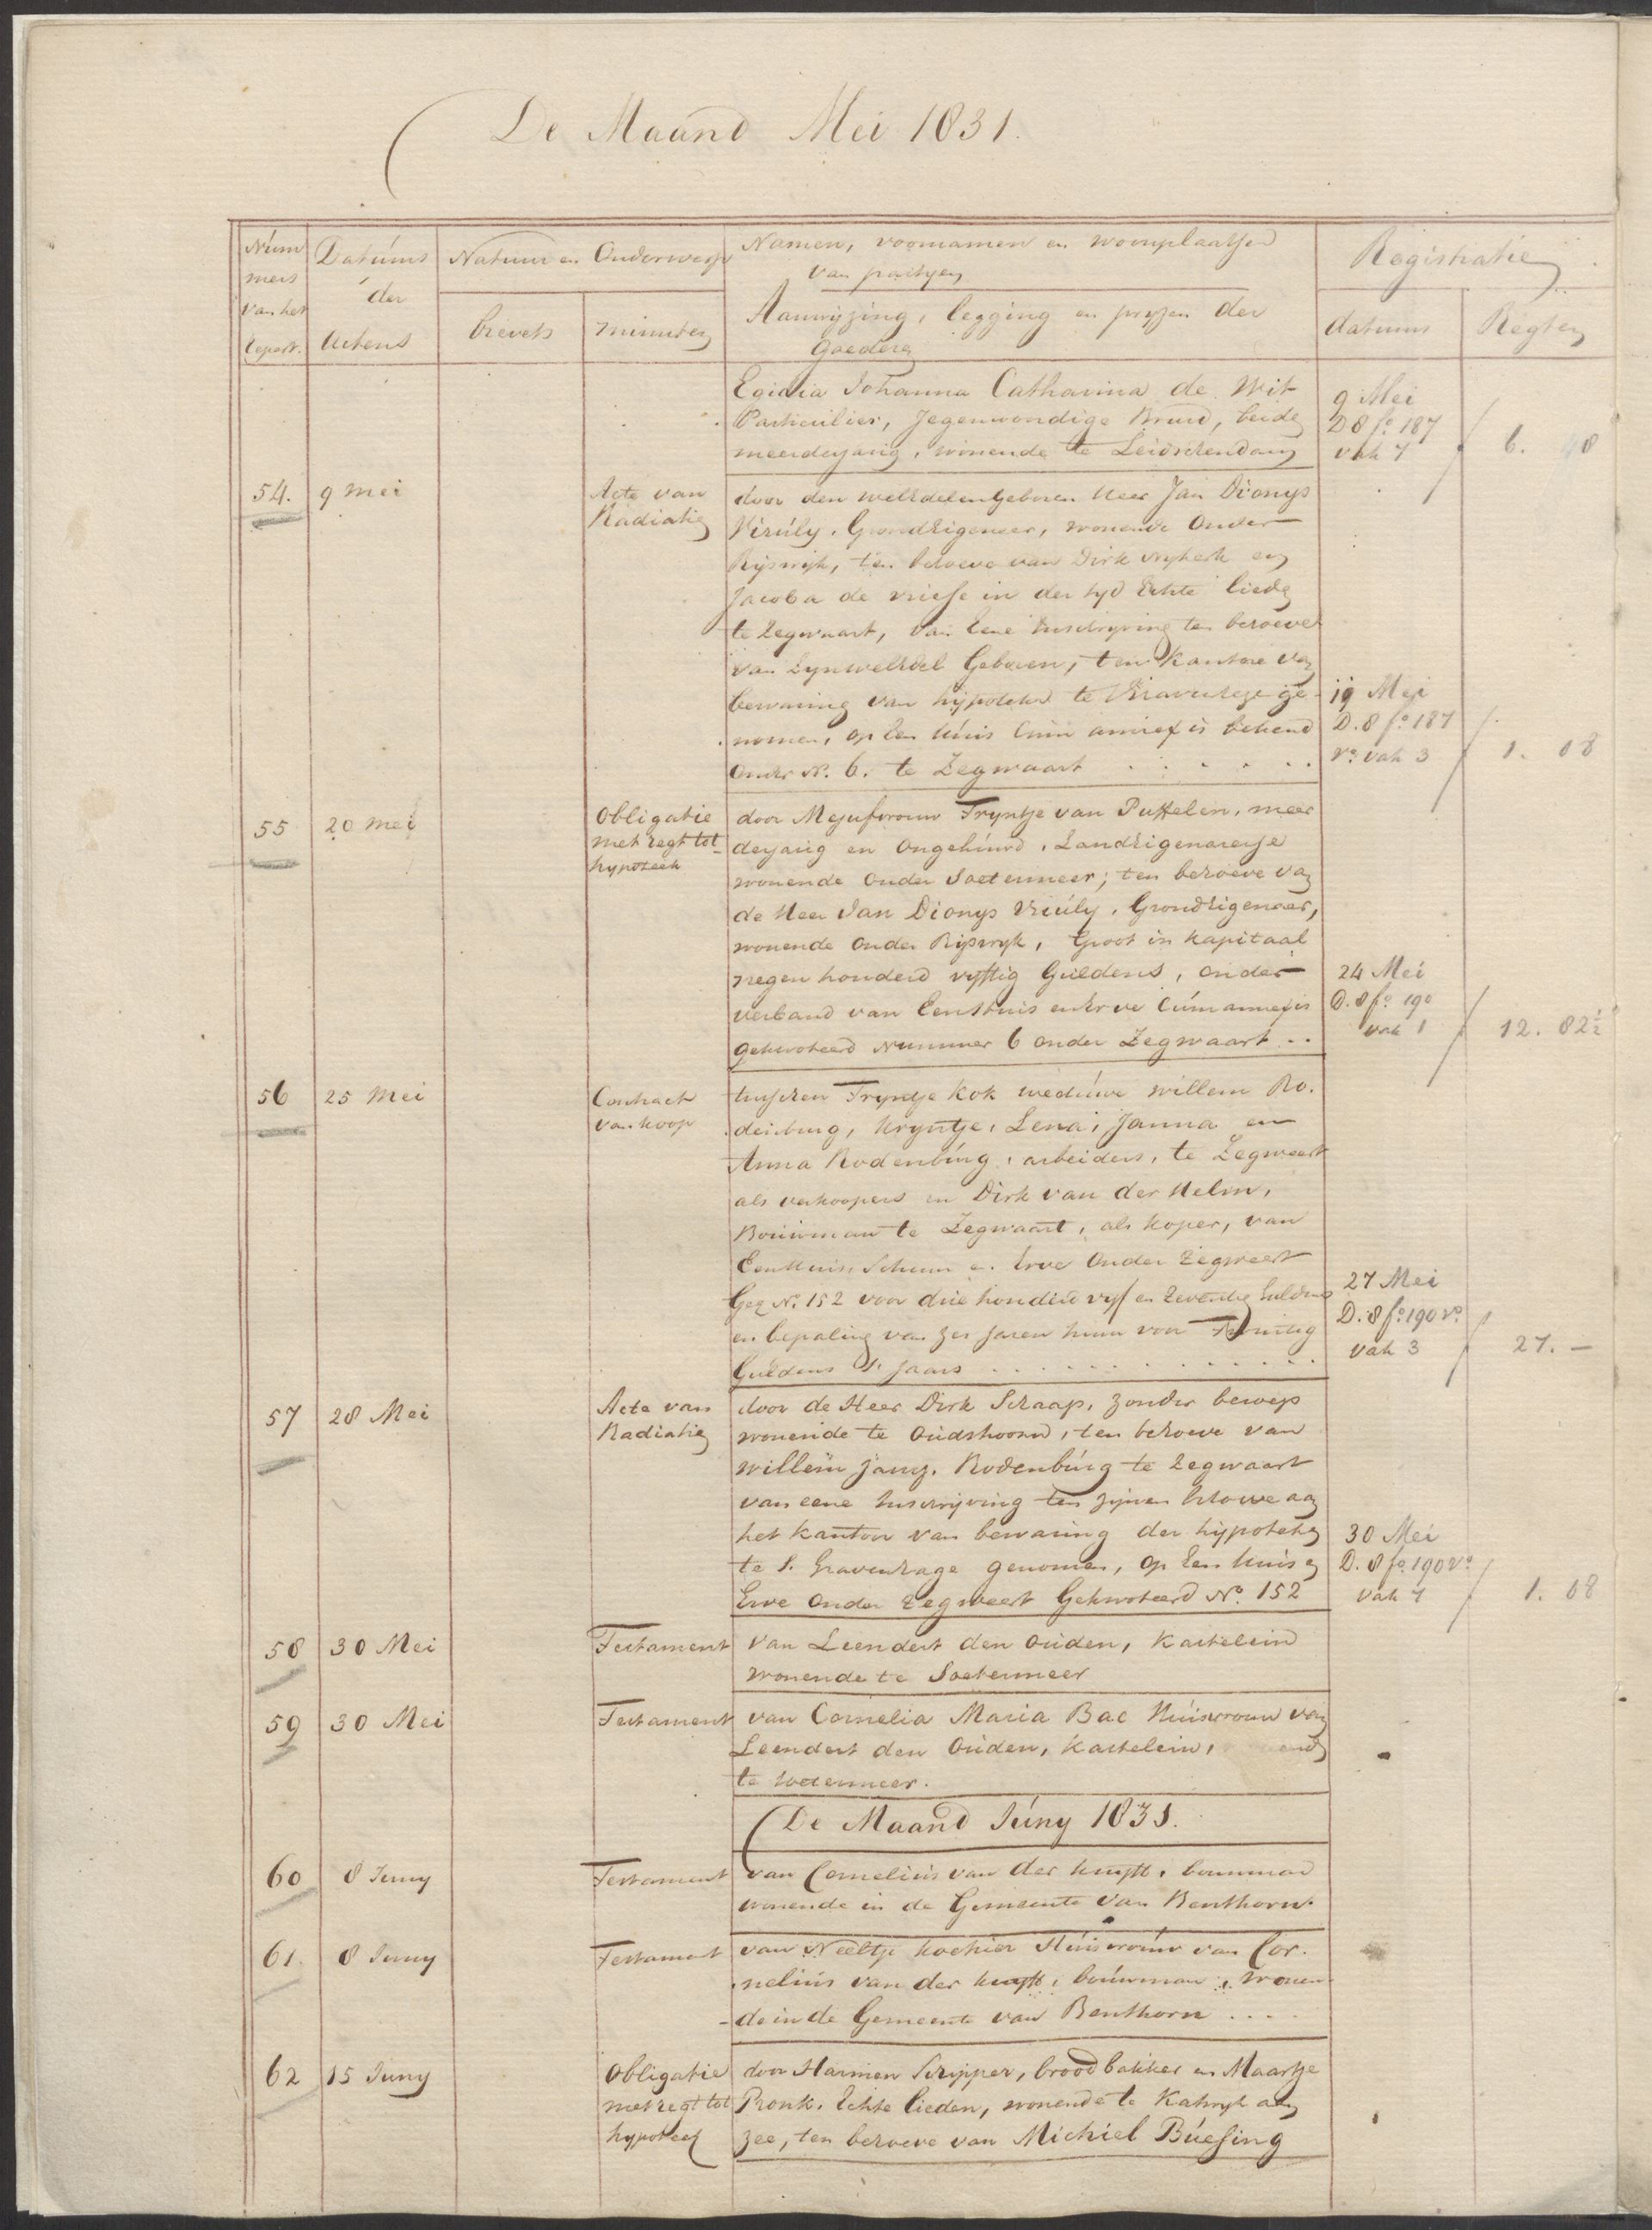 De Maand Mei 1831.
Num
mers
van het
Repert.
Datums
der
Actens
Natuur en Onderwerp
brevets
minuten
Namen, voornamen en woonplaatsen
van partyen
Aanwyzing, legging en pryzen der
Goederen
Registratie
datums
Regten
Egidia Johanna Catharina de Wit
Particulier, Jegenwoordige Bruid, beide
meerderjarig, wonende te Leidschendam
9 Mei
D 8 fo. 187
vak 7
6. 48
54.
9 mei
Acte van
Radiatie
door den welEdelenGeboren Heer Jan Dionys
Viruly. GrondEigenaer, wonende Onder
Rijswijk, ten behoeve van Dirk Nykerk en
Jacoba de Vriese in der tyd Echte lieden
te Zegwaart, van Eene Inschryving ten behoeve
van ZynwelEdel Geboren, ten Kantore van
bewaring van hijpoteken te s'Gravenhage ge-
nomen, op Een Huis Cum annexis bekend
Onder No. 6. te Zegwaart
19 Mei
D. 8 fo. 187
vo. vak 3
1. 08
55
20 mei
Obligatie
met regt tot
hypoteek
door Mejufvrouw Tryntje van Puffelen, meer
derjarig en Ongehuwd, LandEigenaresse
wonende Onder Soetermeer; ten behoeve van
de Heer Jan Dionys Viruly, GrondEigenaer,
wonende Onder Rijswyk, Groot in Kapitaal
negen honderd vyftig Guldens, onder
verband van Een Huis en Erve Cum annexis
gekwoteerd Nummer 6 onder Zegwaart ..
24 Mei
D. 8 fo. 190
vak 1
12. 82½
56
25 Mei
Contract
van koop
tusschen Tryntje Kok weduwe Willem Ro.
denburg, Kryntje, Lena, Janna en
Anna Rodenburg, arbeiders, te Zegwaert
als verkoopers en Dirk van der Helm,
Bouwman te Zegwaart, als koper, van
Een Huis Schuur en Erve Onder Zegwaert
Geq No. 152 voor drie honderd vyf en Zeventig Guldens
en bepaling van zes Jaren huur voor Twintig
Guldens 's Jaars
27 Mei
D. 8 fo. 190 vo.
vak 3
27. —
57
28 Mei
Acte van
Radiatie
door de Heer Dirk Schaap, zonder beroep
wonende te Oudshoorn, ten behoeve van
Willem Janz. Rodenburg te Zegwaart
van eene Inschrijving ten zijnen behoeve aan
het kantoor van bewaring der hijpoteken
te S. Gravenhage genomen, op Een Huis en
Erve Onder Zegwaert Gekwoteerd No. 152
30 Mei
D. 8 fo. 190 vo.
vak 4
1. 08
58
30 Mei
Testament
van Leendert den Ouden, Kastelein
wonende te Soetermeer
59
30 Mei
Testament
van Cornelia Maria Bac Huisvrouw van
Leendert den Ouden, Kastelein,
te Soetermeer.
De Maand Juny 1831.
60
8 Juny
Testament
van Cornelius van der Kruyft, bouwman
wonende in de Gemeente van Benthorn.
61.
8 Juny
Testament
van Neeltje Huisvrouw van Cor.
nelius van der Kruyft, bouwman, wonen-
de in de Gemeente van Benthorn ....
62
15 Juny
Obligatie
met regt tot
hypoteek
door Harmen Schipper, brood bakker en Maartje
Pronk, Echte lieden, wonende te Katwyk aan
zee, ten behoeve van Michiel Buesing